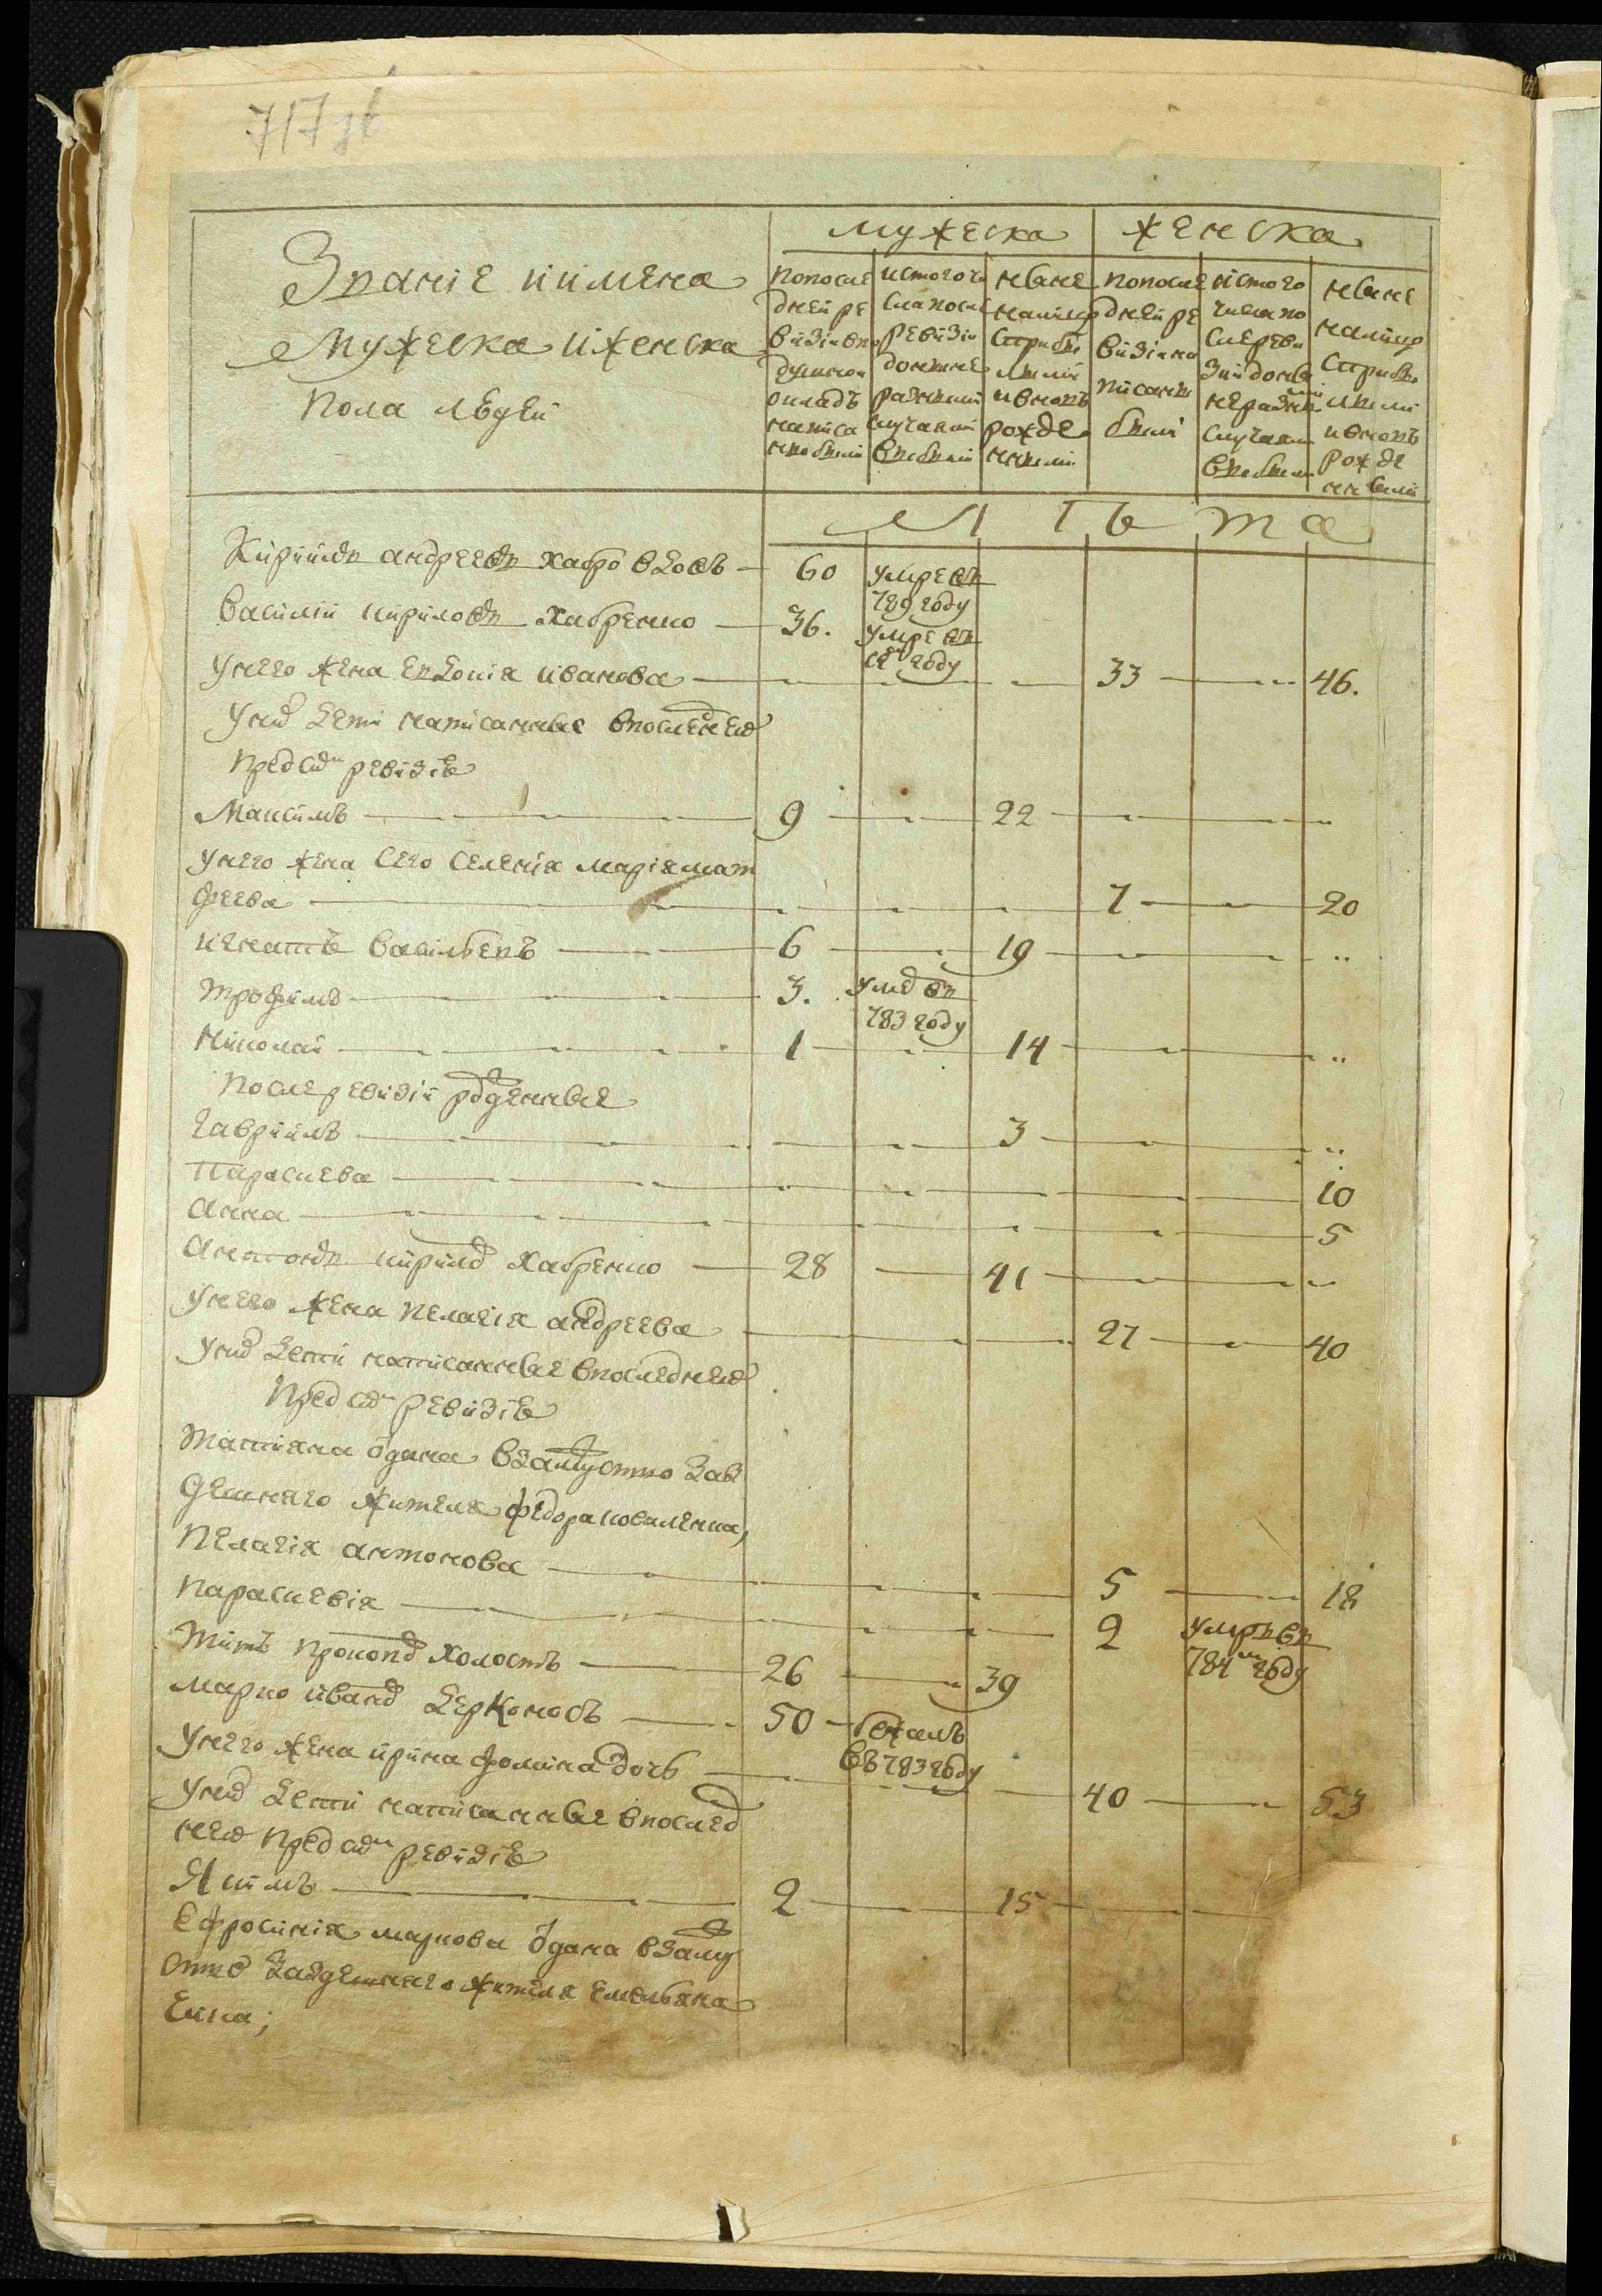 717 зв
мужеска женска
Званіе и имена
мужеска и женска
пола людей
По после
дней ре
визіи въ по
душной
окладъ
написа
но было
и с того чи
сла после
ревизіи
до ныне
разными
случаями
выбыло
ныне
на лицо
с прибы
лыми
и вновь
рожде
нными
По после
дней ре
визіи на
писано
было
и с того
числа по
сле реви
зіи до ны
не разны
ми
случаями
выбыло
ныне
на лицо
с прибы
лыми
и вновь
рожде
нными
Лѣта
Кирилъ андреевъ хабро вдовъ 60 умре въ
789 году
василій кириловъ хабренко 36. умре въ
семъ году
у него жена евдокія иванова 33 46.
у них дети написанные в последней
пред сим ревизіе
максимъ 9 22
у него жена сего селенія марія мат
феева 7 20
игнатъ васильевъ 6 19
трофимъ 3. умер въ
783 году
николай 1 14
после ревизіи рожденные
гаврилъ 3
параскева 10
анна 5
антонъ кирилов хабренко 28 41
у него жена пелагія андреева 27 40
у них дети написанные в последней
пред сим ревизіе
татіяна отдана в замужство за з
дешняго жителя федора коваленка,
пелагія антонова 5 18
параскевія 2 умре въ
784 году
титъ прокопов холостъ 26 39
марко иванов 50 бежалъ
въ 783 году
у него жена ирина фомина дочь 40 53
у них дети написанные в послед
ней пред сим ревизіе
Якимъ 2 15
Ефросинія маркова отдана в заму
жство за здешняго жителя емельяна